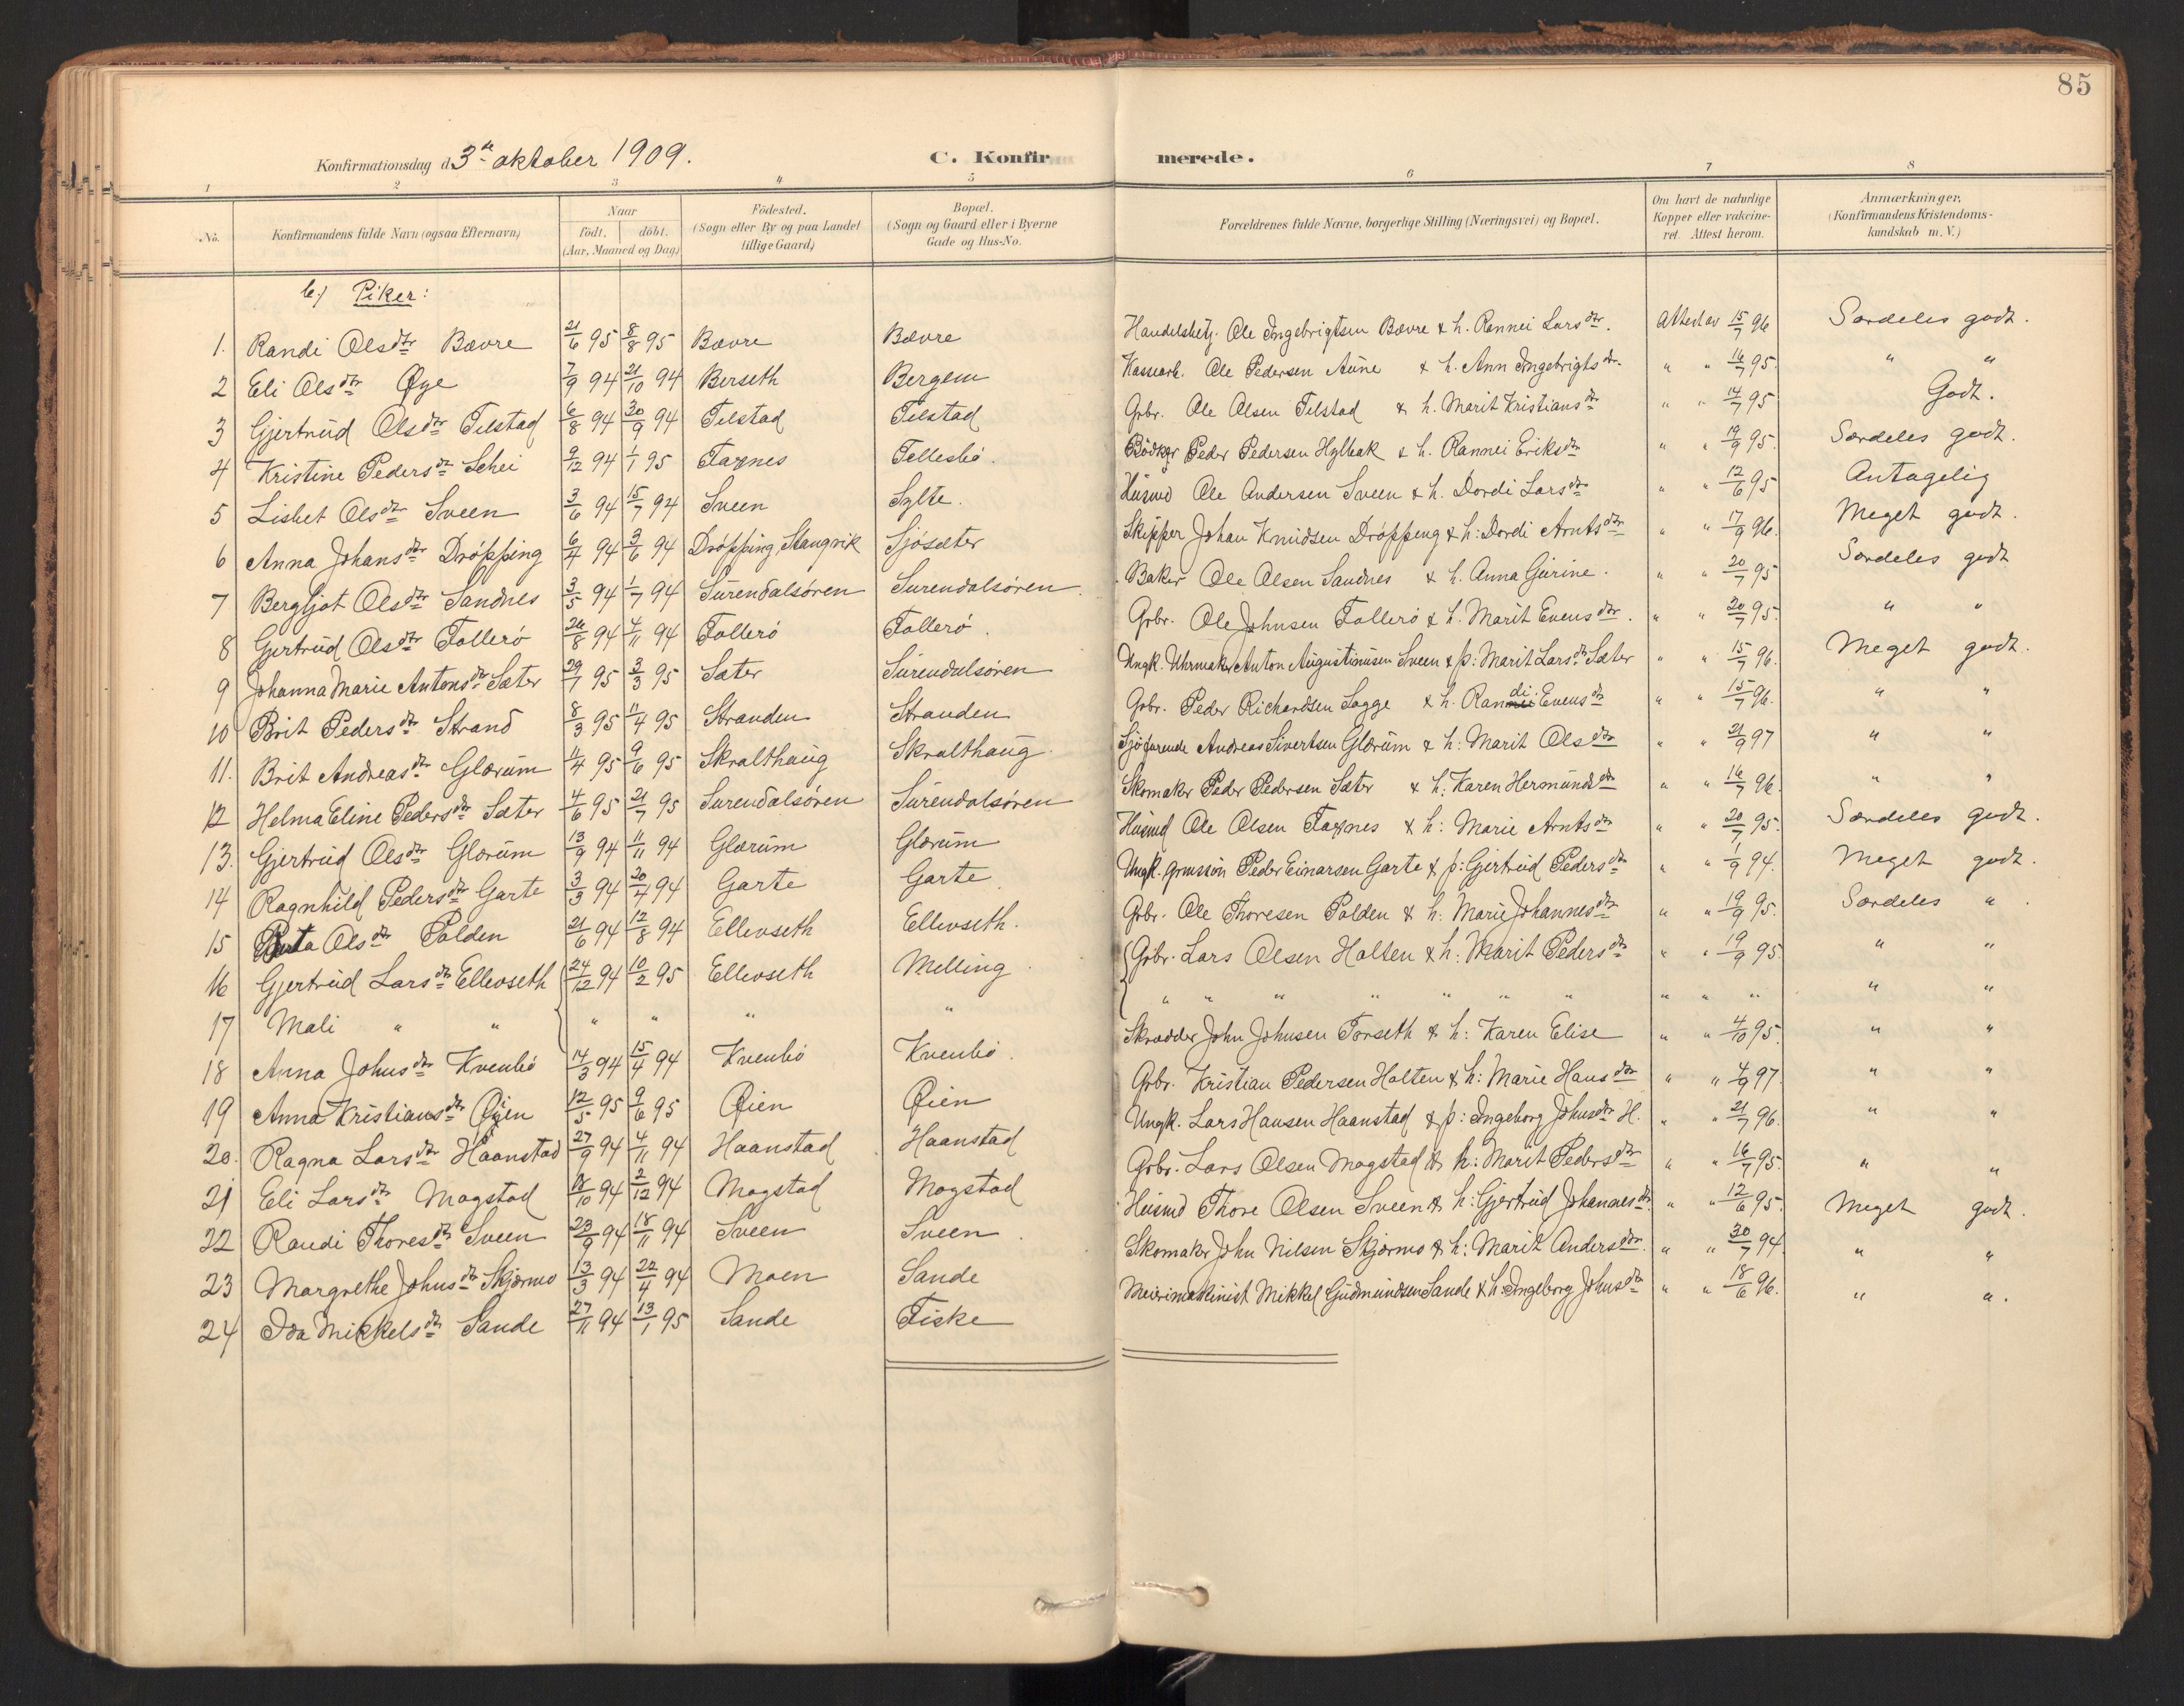 85
Konfirmationsdag d. 3die oktober 1909. C. Konfirmerede.
1 2 3 4 5 6 7 8
No. Konfirmandens fulde Navn (ogsaa Efternavn) Naar födt. döbt. (Aar, Maaned og Dag) Födested. (Sogn eller By og paa Landet tillige Gaard) Bopæl. (Sogn og Gaard eller i Byerne Gade og Hus-No. Forældrenes fulde Navne, borgerlige Stilling (Næringsvei) og Bopæl. Om havt de naturlige Kopper eller vakcineret. Attest herom. Anmærkninger. (Konfirmandens Kristendomskundskab m. V.)
b.) Piker:
1. Randi Olsdtr Bævre 21/6 95 8/8 95 Bævre Bævre Handelsbetj. Ole Ingebrigtsen Bævre & h. Rannei Larsdtr. Attest av 15/7 96 Særdeles godt.
2 Eli Olsdtr Øye 7/9 94 21/10 94 Berseth Bergem Ole Pedersen Aune & h. Ann Ingebrigtsdtr. " " 16/7 95. " "
3 Gjertrud Olsdtr Telstad 6/8 94 30/9 94 Telstad Telstad Gbr. Ole Olsen Telstad & h. Marit Kristiansdtr " " 14/7 95 Godt.
4 Kristine Pedersdtr Schei 9/12 94 1/1 95 Taxnes Tellesbö. Bödker Peder Pedersen Hylbak & h. Rannei Eriksdtr " " 19/9 95. Særdeles godt.
5 Lisbet Olsdtr Sveen 3/6 94 15/7 94 Sveen Sylte. Husmd Ole Andersen Sveen & h. Dordi Larsdtr " " 12/6 95 Antagelig
6 Anna Johansdtr Dröpping 6/4 94 3/6 94 Dröpping, Stangvik Sjösæter Skipper Johan Knudsen Dröppeng & h: Dordi Arntsdtr " " 17/9 96. Meget godt.
7 Bergljot Olsdtr Sandnes 3/5 94 1/7 94 Surendalsören Surendalsören. Baker Ole Olsen Sandnes & h. Anna Gurine. " " 20/7 95 Særdeles godt
8 Gjertrud Olsdtr Tollerö 26/8 94 4/11 94 Tollerö Tollerö. Gbr. Ole Johnsen Tollerö & h. Marit Evensdtr. " " 20/7 95. " "
9 Johanna Marie Antonsdtr Sæter 29/1 95 3/3 95 Sæter Surendalsören Ungk. Uhrmaker Anton Augustinusen Sveen & p: Marit Larsdtr Sæter " " 15/7 96. Meget godt.
10 Brit Pedersdtr Strand 8/3 95 11/4 95 Stranden Stranden Gbr. Peder Richardsen Sagge & h. Randi Evensdtr " " 15/7 96. " "
11. Brit Andreasdtr Glærum 11/4 95 9/6 95 Skralthaug Skralthaug. Sjöfarende Andreas Sivertsen Glærum & h: Marit Olsdtr " " 21/9 97 " "
12 Helma Eline Pedersdtr Sæter 4/6 95 21/7 95 Surendalsören Surendalsören Skomaker Peder Pedersen Sæter & h. Karen Hermundsdtr " " 16/7 96. " "
13. Gjertrud Olsdtr Glærum 13/9 94 11/11 94 Glærum Glærum Husmd Ole Olsen Taxnes & h: Marie Arntsdtr " " 20/7 95. Særdeles godt.
14 Ragnhild Pedersdtr Garte 3/3 94 20/4 94 Garte Garte Ungk. Peder Einarsen Garte & p: Gjertrud Pedersdtr " " 1/9 94. Meget godt.
15 Olsdtr Polden 21/6 94 12/8 94 Ellevseth Ellevseth. Gbr. Ole Thoresen Polden & h: Marie Johannesdtr " " 19/9 95. Særdeles ".
16 Gjertrud Larsdtr Ellevseth 24/12 94 10/2 95 Ellevseth Melling. Gbr. Lars Olsen Holten & h: Marit Pedersdtr " " 19/9 95. " "
17 Mali " " " " " " " " " " " " " " " " " " "
18 Anna Johnsdtr Kvenbö 14/3 94 15/4 94 Kvenbö Kvenbö. Skrædder John Johnsen Torseth & h: Karen Elise " " 4/10 95. " "
19 Anna Kristiansdtr Øien 12/5 95 9/6 95 Øien Øien Gbr. Kristian Pedersen Holten & h: Marie Hansdtr " " 4/9 97. " "
20. Ragna Larsdtr Haanstad 27/9 94 4/11 94 Haanstad Haanstad Ungk. Lars Hansen Haanstad & p: Ingeborg Johnsdtr H. " " 21/7 96. " "
21 Eli Larsdtr Mogstad 18/10 94 2/12 94 Mogstad Mogstad Gbr. Lars Olsen Mogstad & h: Marit Pedersdtr " " 16/7 95. " "
22 Randi Thoresdtr Sveen 23/9 94 18/11 94 Sveen Sveen. Husmd Thore Olsen Sveen & h: Gjertrud Johannesdtr. " " 12/6 95. Meget godt.
23 Margrethe Johnsdtr Skjærmo 13/3 94 22/4 94 Moen Sande Skomaker John Nilsen Skjærmo & h: Marit Andersdtr. " " 30/7 94 " "
24 Ida Mikkelsdtr Sande 27/11 94 13/1 95 Sande Fiske Meierimaskinist Mikkel Gudmundsen Sande & h: Ingeborg Johnsdtr " " 18/6 96. " ".